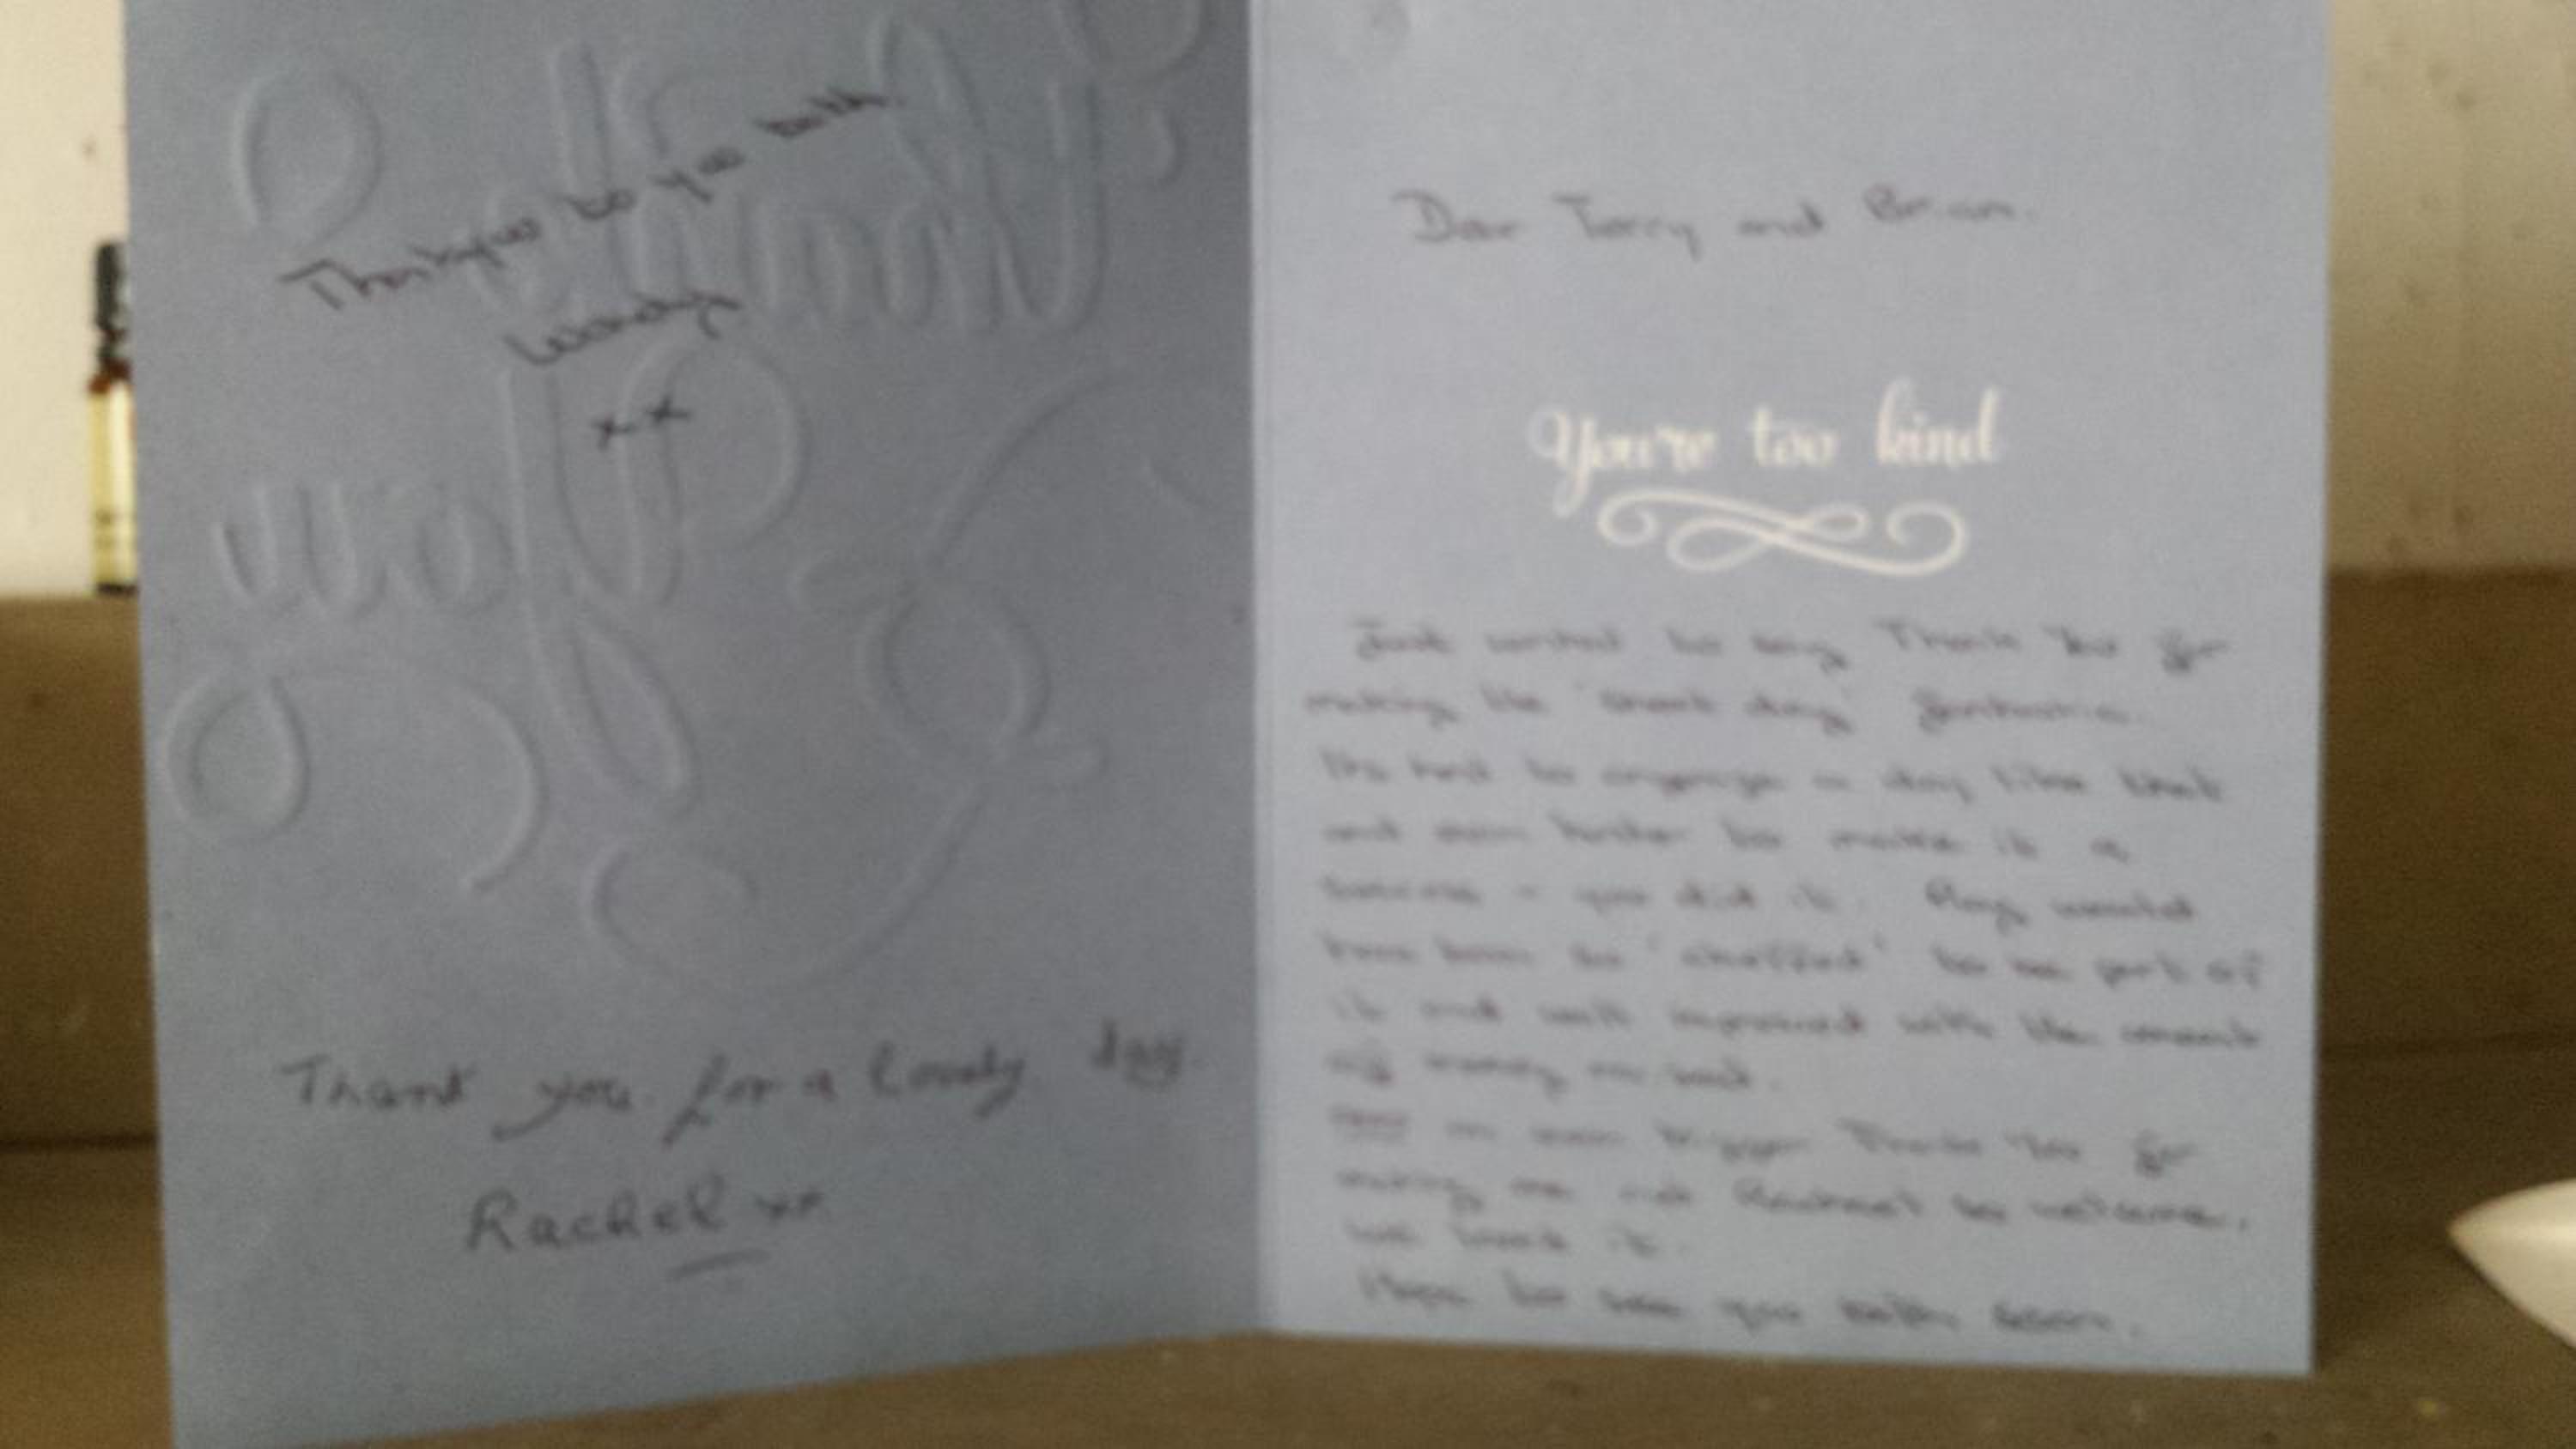 Thankyou to you both.
Wendy
xx
Thank you for a lovely day.
Rachel xx
Dear Terry and Brian.
You're too kind
Just wanted to say Thank You for
making the day' fantastic.
Its hard to organise a day like that
and even harder to make it a
success - you did it. would
have been so 'chuffed' to be part of
it and well impressed with the amount
of money raised.
an even bigger Thank You for
making me and Rachael so welcome.
We loved it.
Hope to see you both soon.